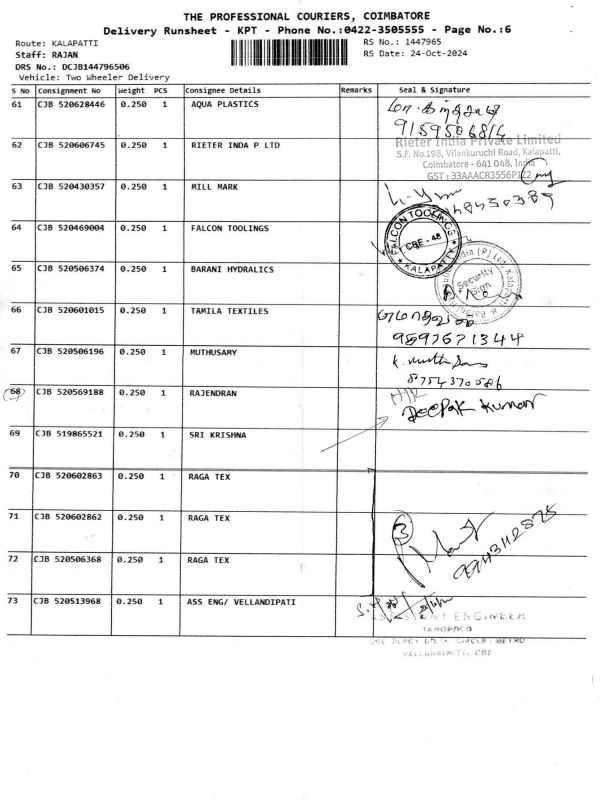 THE PROFESSIONAL COURIERS, COIMBATORE
Delivery Runsheet - KPT - Phone No.:0422-3505555 - Page No.:6
Route: KALAPATTI
RS No.: 1447965
Staff: RAJAN
RS Date: 24-Oct-2024
DRS No.: DCJB144796506
Vehicle: Two Wheeler Delivery
S No Consignment No Weight PCS Consignee Details Remarks Seal & Signature
61 CJB 520628446 0.250 1 AQUA PLASTICS
9159506814
62 CJB 520606745 0.250 1 RIETER INDA P LTD
Rieter India Private Limited
S.F. No.198, Vilankuruchi Road, Kalapatti,
Coimbatore - 641 048, India
GST : 33AAACR3556P1Z2
63 CJB 520430357 0.250 1 MILL MARK
64 CJB 520469004 0.250 1 FALCON TOOLINGS
FALCON TOOLINGS
CBE - 48
KALAPATTI
65 CJB 520506374 0.250 1 BARANI HYDRALICS
Security
66 CJB 520601015 0.250 1 TAMILA TEXTILES
9597671344
67 CJB 520506196 0.250 1 MUTHUSAMY
8754370586
68 CJB 520569188 0.250 1 RAJENDRAN
Deepak Kumar
69 CJB 519865521 0.250 1 SRI KRISHNA
70 CJB 520602863 0.250 1 RAGA TEX
71 CJB 520602862 0.250 1 RAGA TEX
3
9943112875
72 CJB 520506368 0.250 1 RAGA TEX
73 CJB 520513968 0.250 1 ASS ENG/ VELLANDIPATI
ASSISTENT ENGINEER
TANGEDCO
VELLANAIPATTI, CBE